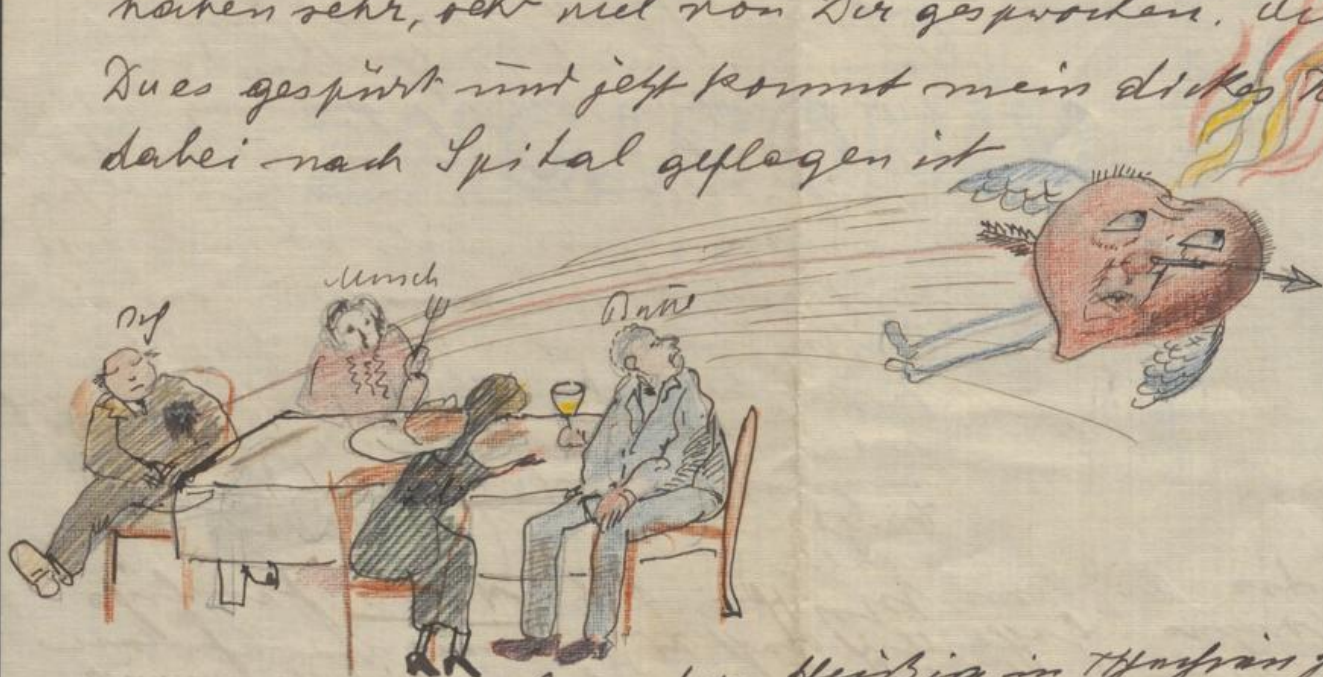 haben sehr, sehr viel von Dir gesprochen.
Du es gespürt und jetzt kommt mein dickes
dabei nach Spital geflogen ist
Musch
in